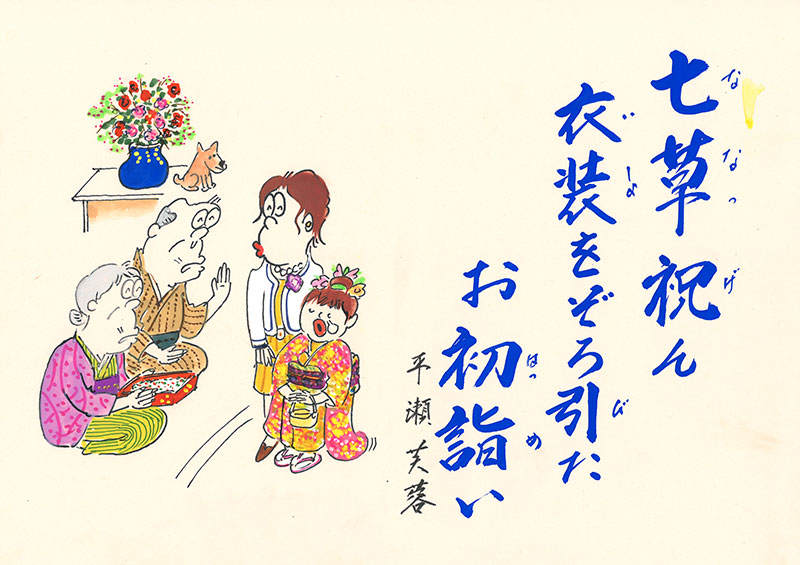 な なっ げ
七草祝ん
いしょ び
衣装をぞろ引た
はっ め
お初詣い
平瀬芙蓉